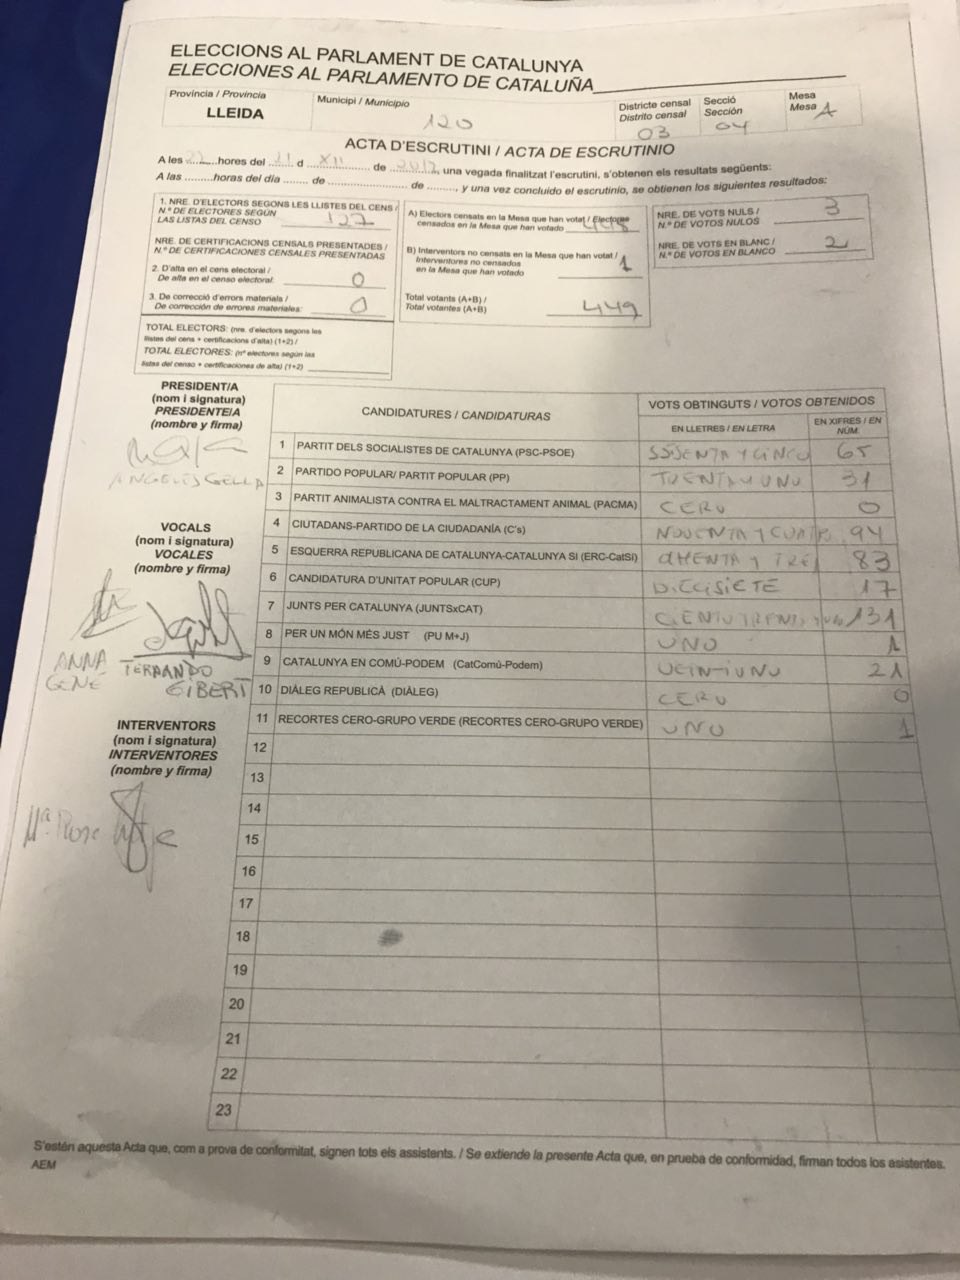 ELECCIONS AL PARLAMENT DE CATALUNYA
ELECCIONES AL PARLAMENTO DE CATALUÑA
Província / Provincia
LLEIDA
Municipi / Municipio
120
Districte censal
Distrito censal
03
Secció
Sección
04
Mesa
Mesa A
ACTA D'ESCRUTINI / ACTA DE ESCRUTINIO
A les ........hores del ........ d XII de ........, una vegada finalitzat l'escrutini, s'obtenen els resultats següents:
A las .........horas del día ....... de ........................ de ........, y una vez concluido el escrutinio, se obtienen los siguientes resultados:
1. NRE. D'ELECTORS SEGONS LES LLISTES DEL CENS /
N.º DE ELECTORES SEGÚN
LAS LISTAS DEL CENSO 127
NRE. DE CERTIFICACIONS CENSALS PRESENTADES /
N.º DE CERTIFICACIONES CENSALES PRESENTADAS
2. D'alta en el cens electoral /
De alta en el censo electoral: 0
3. De correcció d'errors materials /
De corrección de errores materiales: 0
TOTAL ELECTORS: (nre. d'electors segons les
llistes del cens + certificacions d'alta) (1+2) /
TOTAL ELECTORES: (nº electores según las
listas del censo + certificaciones de alta) (1+2)
A) Electors censats en la Mesa que han votat / Electores
censados en la Mesa que han votado 448
B) Interventors no censats en la Mesa que han votat /
Interventores no censados
en la Mesa que han votado 1
Total votants (A+B) /
Total votantes (A+B) 449
NRE. DE VOTS NULS /
N.º DE VOTOS NULOS 3
NRE. DE VOTS EN BLANC /
N.º DE VOTOS EN BLANCO 2
PRESIDENT/A
(nom i signatura)
PRESIDENTE/A
(nombre y firma)
VOCALS
(nom i signatura)
VOCALES
(nombre y firma)
ANNA GENÉ
FERNANDO GIBERT
INTERVENTORS
(nom i signatura)
INTERVENTORES
(nombre y firma)
Mª Rosa
CANDIDATURES / CANDIDATURAS
VOTS OBTINGUTS / VOTOS OBTENIDOS
EN LLETRES / EN LETRA
EN XIFRES / EN NÚM.
1 PARTIT DELS SOCIALISTES DE CATALUNYA (PSC-PSOE) 65
2 PARTIDO POPULAR/ PARTIT POPULAR (PP) 31
3 PARTIT ANIMALISTA CONTRA EL MALTRACTAMENT ANIMAL (PACMA) CERO 0
4 CIUTADANS-PARTIDO DE LA CIUDADANÍA (C's) NOVENTA Y CUATRO 94
5 ESQUERRA REPUBLICANA DE CATALUNYA-CATALUNYA SÍ (ERC-CatSí) 83
6 CANDIDATURA D'UNITAT POPULAR (CUP) DIECISIETE 17
7 JUNTS PER CATALUNYA (JUNTSxCAT) 131
8 PER UN MÓN MÉS JUST (PU M+J) UNO 1
9 CATALUNYA EN COMÚ-PODEM (CatComú-Podem) VEINTIUNO 21
10 DIÀLEG REPUBLICÀ (DIÀLEG) CERO 0
11 RECORTES CERO-GRUPO VERDE (RECORTES CERO-GRUPO VERDE) UNO 1
12
13
14
15
16
17
18
19
20
21
22
23
S'estén aquesta Acta que, com a prova de conformitat, signen tots els assistents. / Se extiende la presente Acta que, en prueba de conformidad, firman todos los asistentes.
AEM